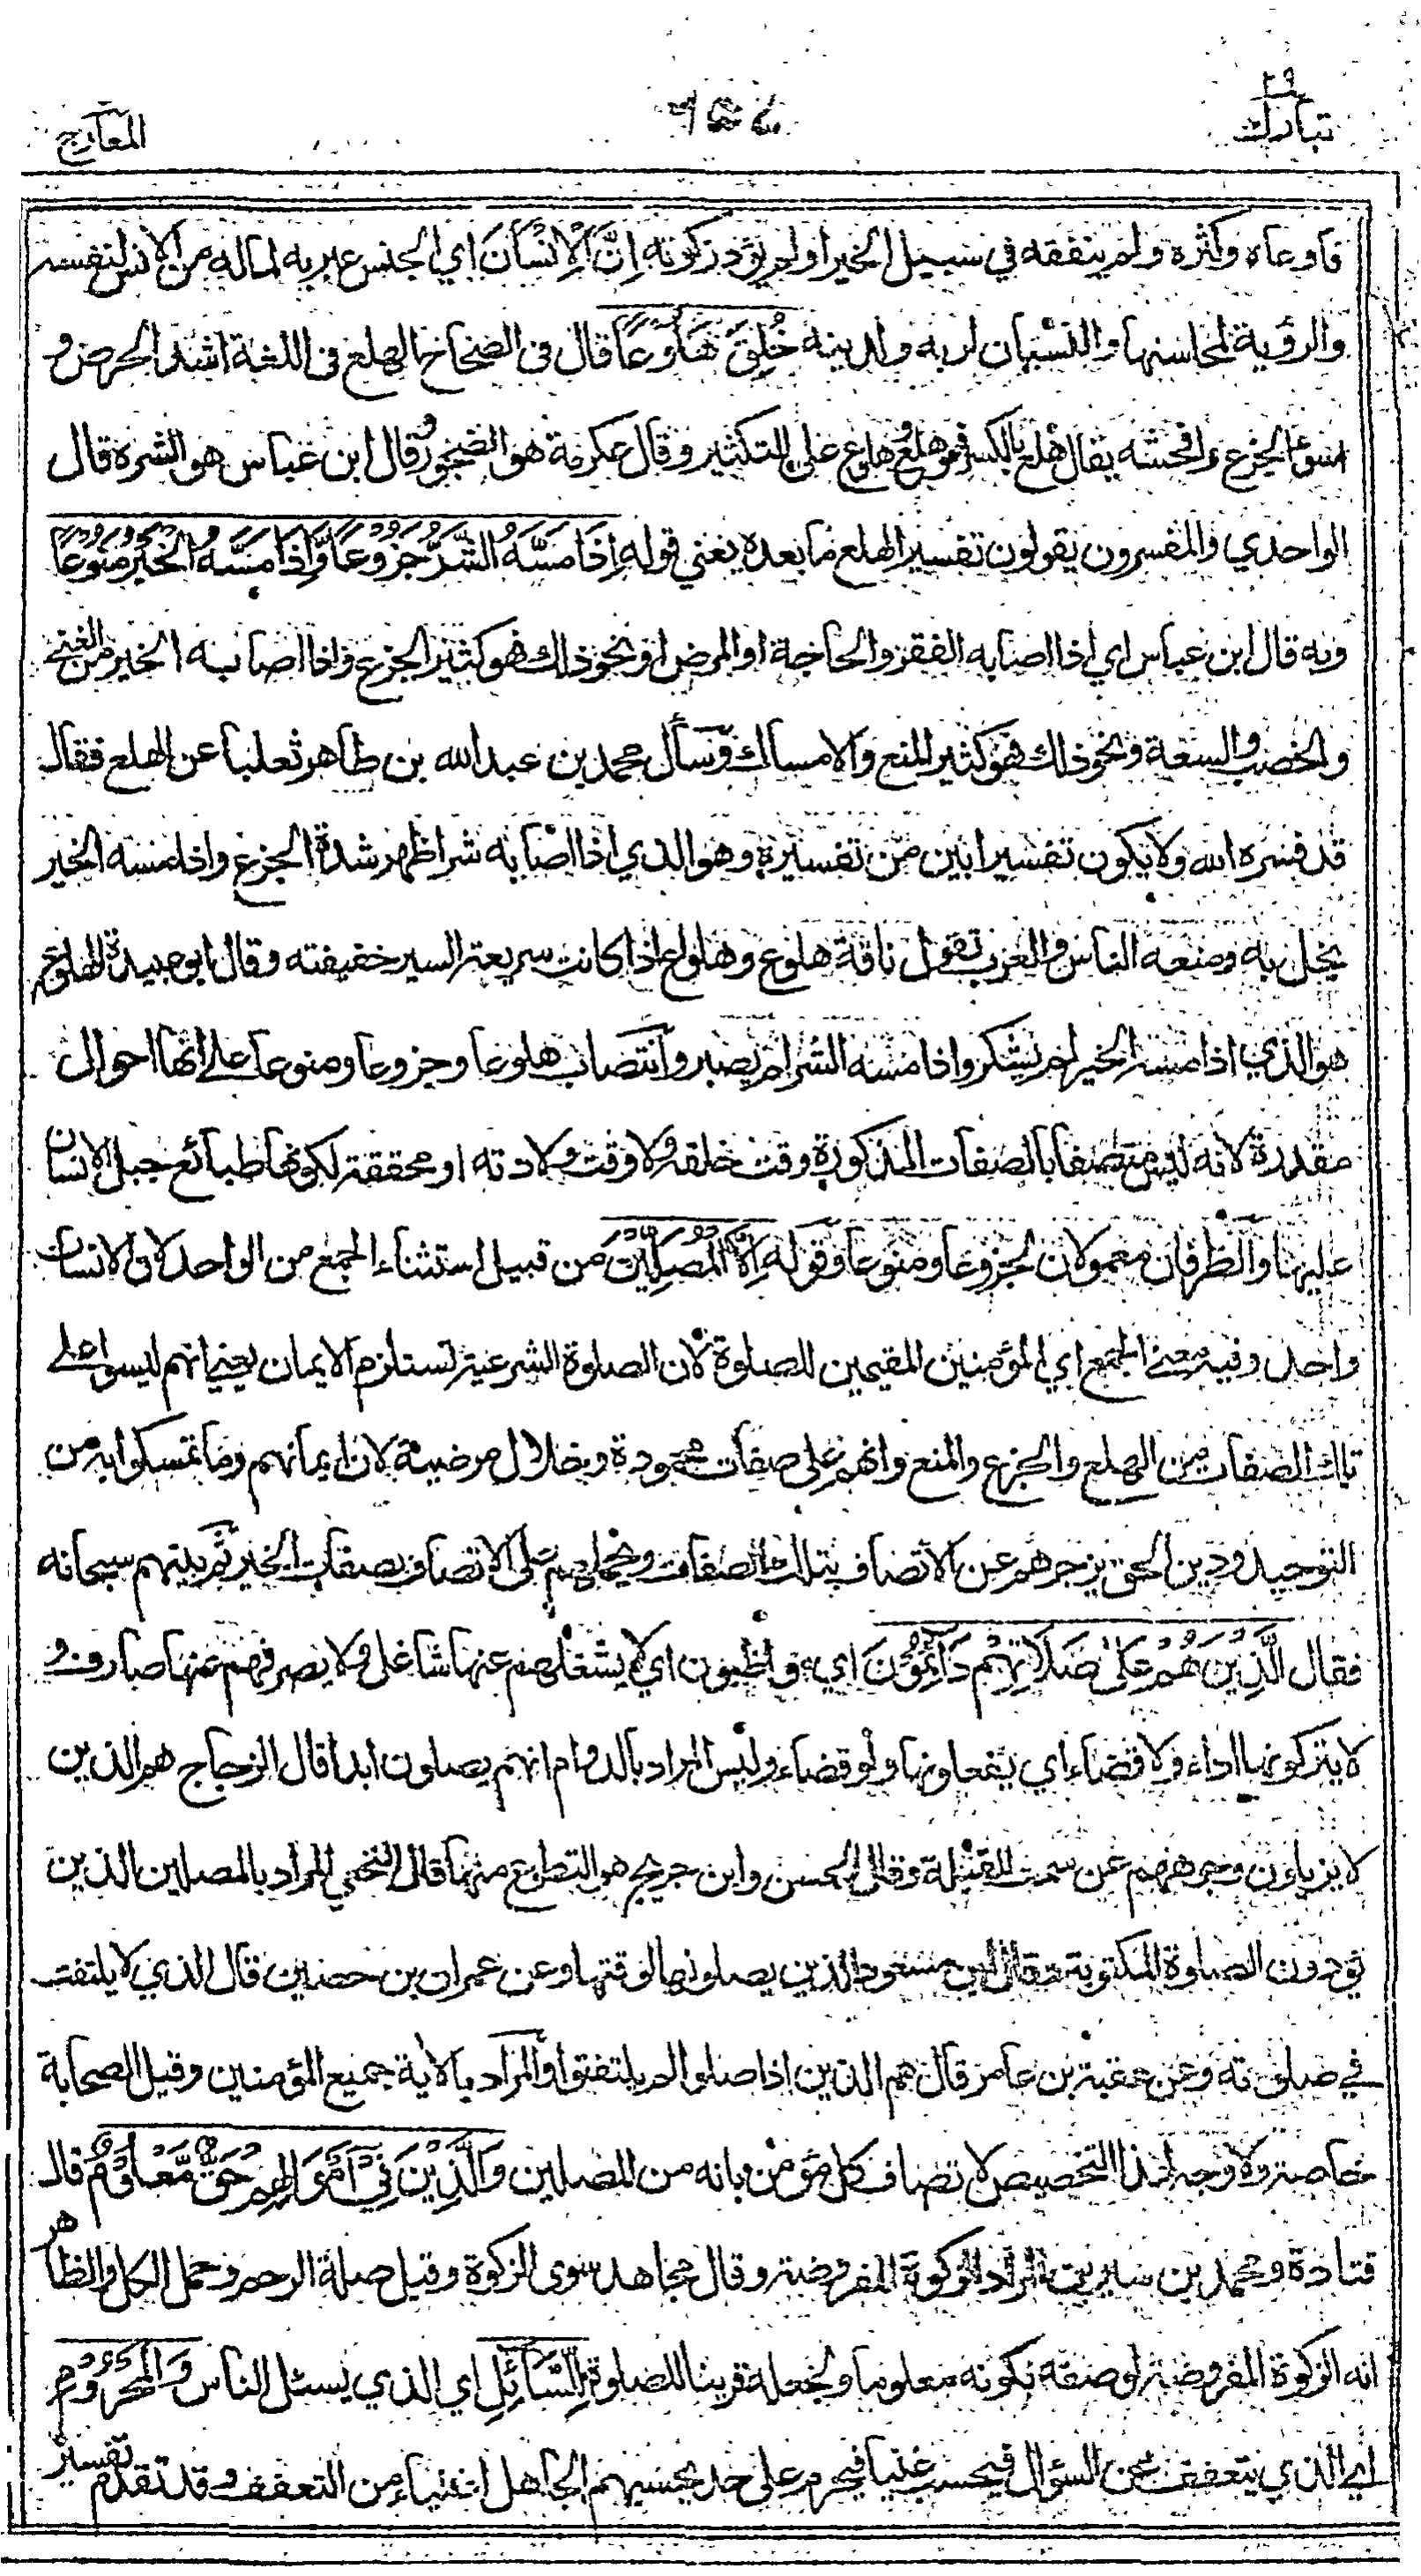 ٢٩
تبارك
المعارج
فاوعاه وكثره ولم ينفقه في سبيل الخير اولم يؤد زكوته اِنَّ الْاِنْسَانَ اي الجنس عبر به لما له من الانس لنفسه
والرؤية لمحاسنها والنسيان لربه ولدينه خُلِقَ هَلُوْعًا قال في الصحاح الهلع في اللغة اشد الحرص و
اسوء الجزع وافحشه يقال هلع بالكسر فهو هلع وهلوع على التكثير وقال عكرمة هو الضجور وقال ابن عباس هو الشره قال
الواحدي والمفسرون يقولون تفسير الهلع ما بعده يعني قوله اِذَا مَسَّهُ الشَّرُّ جَزُوْعًا وَّاِذَا مَسَّهُ الْخَيْرُ مَنُوْعًا
وبه قال ابن عباس اي اذا اصابه الفقر والحاجة او المرض او نحو ذلك فهو كثير الجزع واذا اصابه الخير من الغنى
والخصب والسعة ونحو ذلك فهو كثير المنع والامساك وسأل محمد بن عبدالله بن طاهر ثعلبا عن الهلع فقال
قد فسره الله ولا يكون تفسير ابين من تفسيره وهو الذي اذا اصابه شر اظهر شدة الجزع واذا مسه الخير
بخل به ومنعه الناس والعرب تقول ناقة هلوع وهلواع اذا كانت سريعة السير خفيفته وقال ابو عبيدة الهلوع
هو الذي اذا مسه الخير لم يشكر واذا مسه الشر لم يصبر وانتصاب هلوعا وجزوعا ومنوعا على انها احوال
مقدرة لانه ليس متصفا بالصفات المذكورة وقت خلقه ولا وقت ولادته او محققة لكونها طبائع جبل الانسان
عليها والظرفان معمولان لجزوعا ومنوعا وقوله اِلَّا الْمُصَلِّيْنَ من قبيل استثناء الجمع من الواحد لان الانسان
واحد وفيه معنى الجمع اي المؤمنين المقيمين للصلوة لان الصلوة الشرعية تستلزم الايمان يعني انهم ليسوا على
تلك الصفات من الهلع والجزع والمنع وانهم على صفات محمودة وخلال مرضية لان ايمانهم وما تمسكوا به من
التوحيد ودين الحق يزجرهم عن الاتصاف بتلك الصفات ويحملهم على الاتصاف بصفات الخير ثم بينهم سبحانه
فقال الَّذِيْنَ هُمْ عَلٰى صَلَاتِهِمْ دَآئِمُوْنَ اي مواظبون اي لا يشغلهم عنها شاغل ولا يصرفهم عنها صارف و
لا يتركونها اداء ولا قضاء اي يفعلونها ولو قضاء وليس المراد بالدوام انهم يصلون ابدا قال الزجاج هم الذين
لا يزيلون وجوههم عن سمت القبلة وقال الحسن وابن جريج هو التطوع منها قال النخعي المراد بالمصلين الذين
يؤدون الصلوة المكتوبة وقال ابن مسعود الذين يصلونها لوقتها وعن عمران بن حصين قال الذي لا يلتفت
في صلوته وعن عقبة بن عامر قال هم الذين اذا صلوا لم يلتفتوا والمراد بالاية جميع المؤمنين وقيل الصحابة
خاصة ولا وجه لهذا التخصيص لاتصاف كل مؤمن بانه من المصلين وَالَّذِيْنَ فِيْ اَمْوَالِهِمْ حَقٌّ مَّعْلُوْمٌ قال
قتادة ومحمد بن سيرين المراد الزكوة المفروضة وقال مجاهد سوى الزكوة وقيل صلة الرحم وحمل الكل والظاهر
انه الزكوة المفروضة لوصفه بكونه معلوما ولجعله قرينا للصلوة لِلسَّآئِلِ اي الذي يسئل الناس وَالْمَحْرُوْمِ
اي الذي يتعفف عن السؤال فيحسب غنيا فيحرم على حد يحسبهم الجاهل اغنياء من التعفف وقد تقدم تفسير